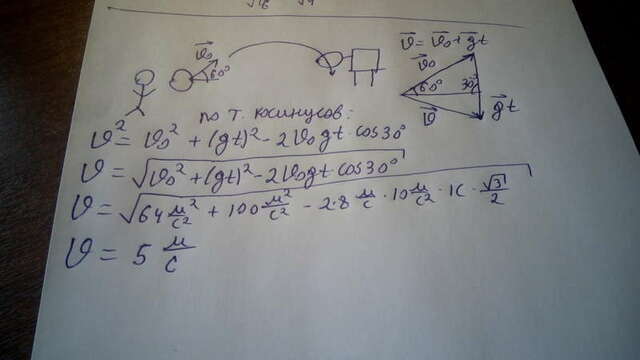 v⃗₀
60°
v⃗ = v⃗₀ + g⃗t
v⃗₀
60°
30°
v⃗
g⃗t
по т. косинусов:
v² = v₀² + (gt)² - 2v₀gt · cos30°
v = √(v₀² + (gt)² - 2v₀gt · cos30°)
v = √(64 м²/с² + 100 м²/с² - 2·8 м/с · 10 м/с² · 1с · √3/2)
v = 5 м/с